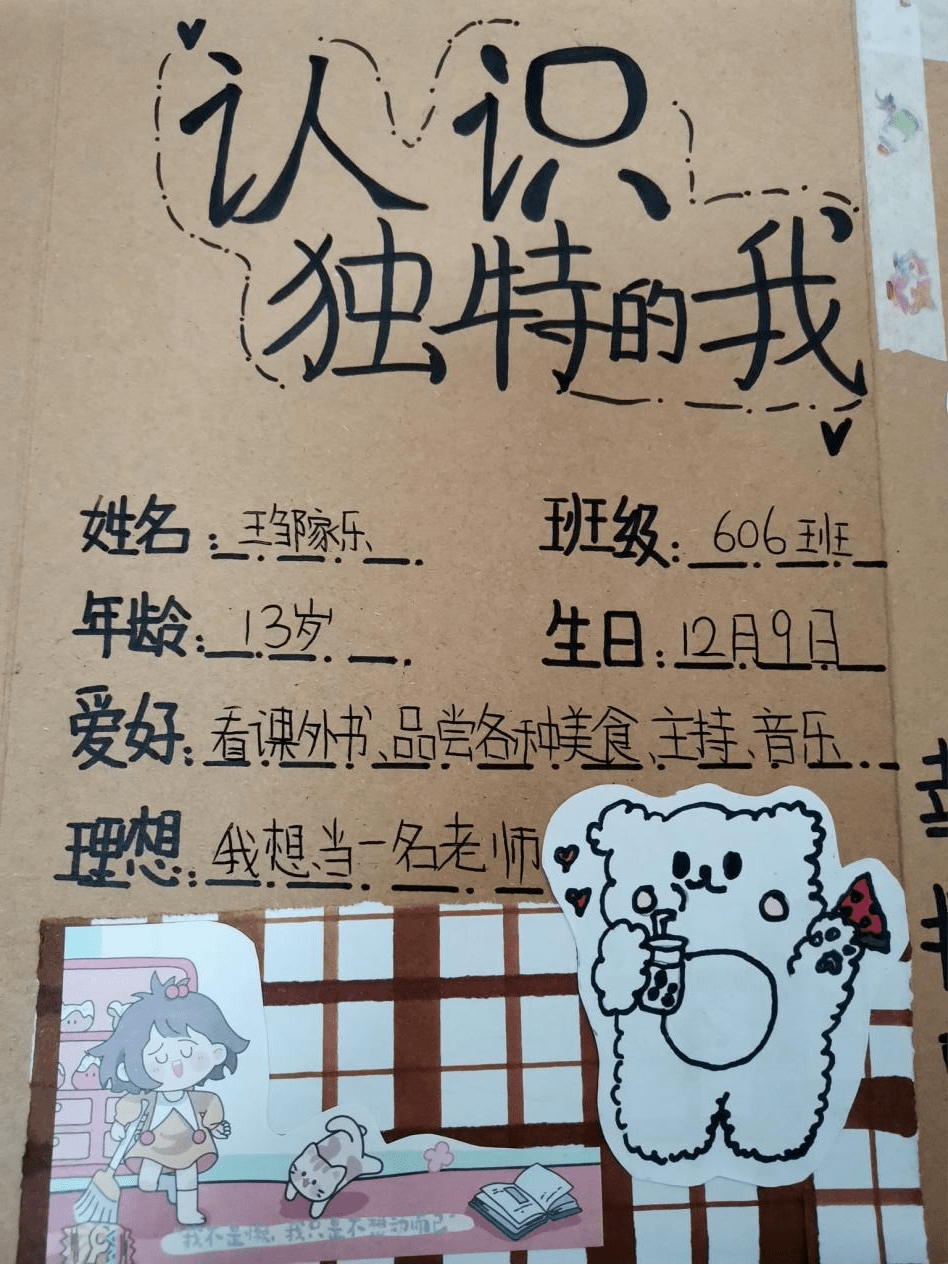 认识
独特的我
姓名：王邹家乐 班级：606班
年龄：13岁 生日：12月9日
爱好：看课外书、品尝各种美食、主持、音乐
理想：我想当一名老师
我不是懒，我只是不想动而已